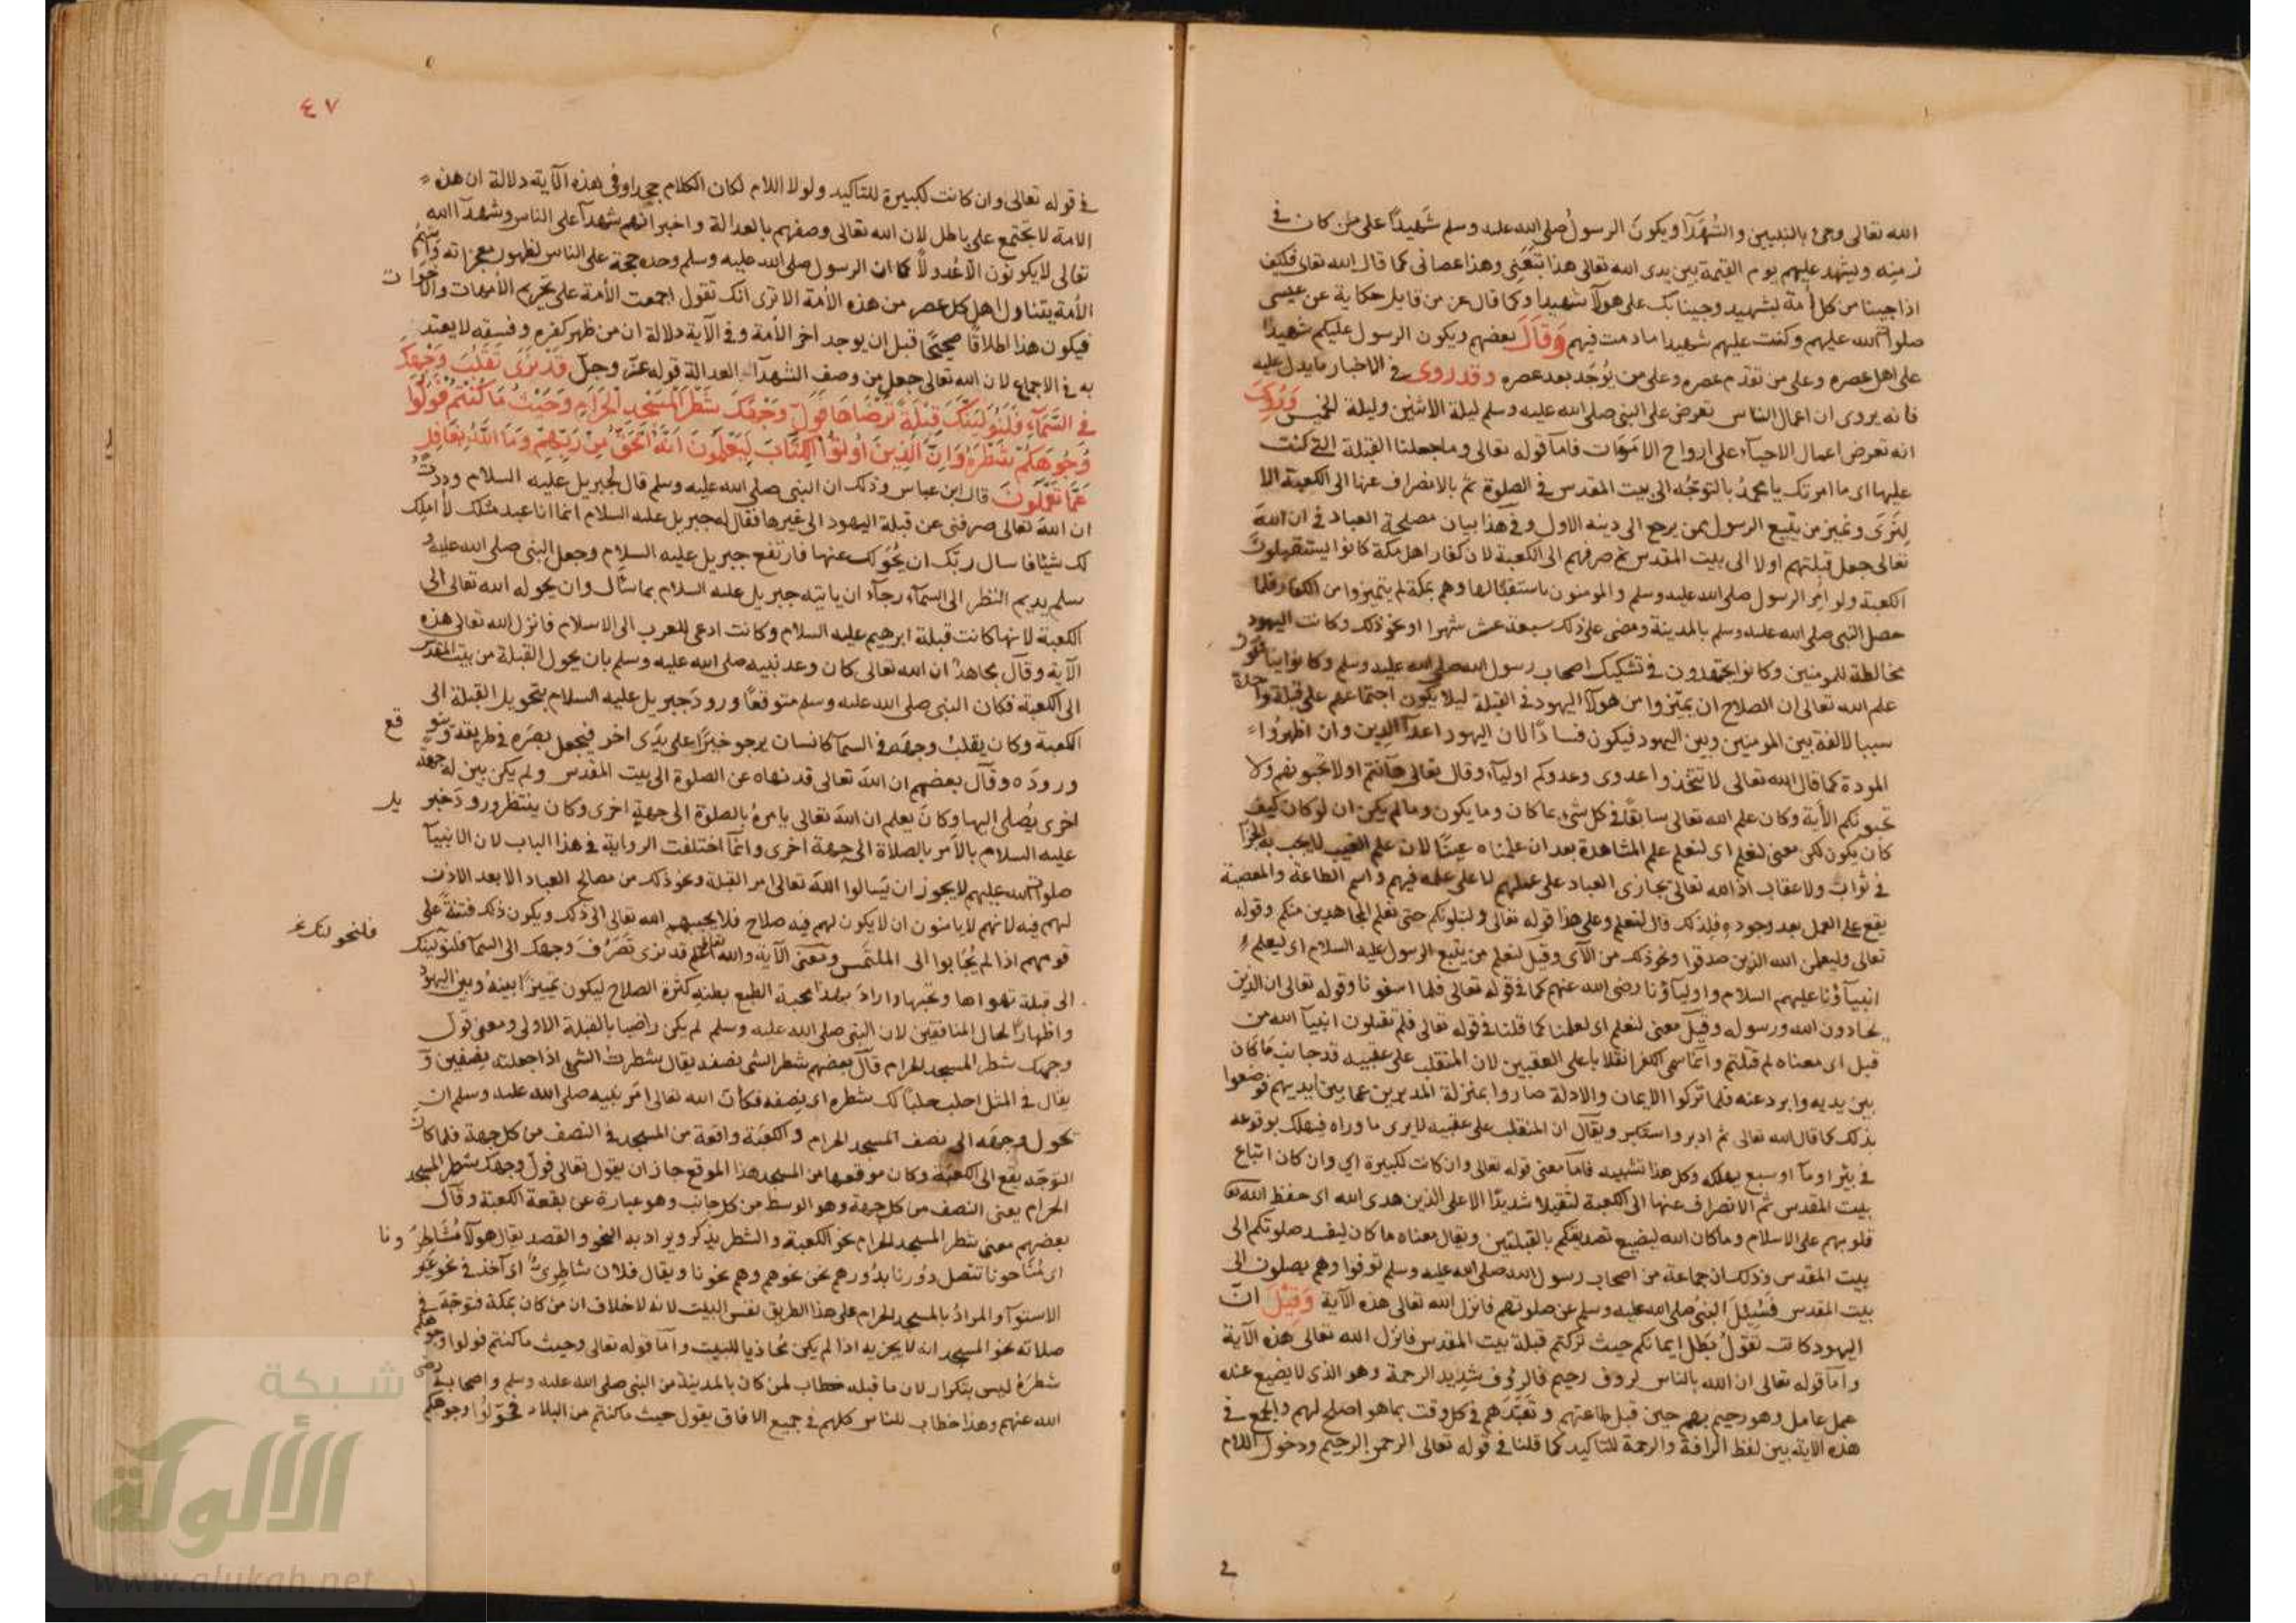 الله تعالى وجئ بالنبيين والشهدآ ويكون الرسول صلى الله عليه وسلم شهيدًا على من كان في
زمنه ويشهد عليهم يوم القيمة بين يدى الله تعالى هذا تبعني وهذا عصانى كما قال الله تعالى فكيف
اذا جينا من كل أمة بشهيد وجينا بك على هولآ شهيدا وكما قال عز من قايل حكاية عن عيسى
صلوات الله عليهم وكنت عليهم شهيدا ما دمت فيهم وقال بعضهم ويكون الرسول عليكم شهيدًا
على اهل عصره وعلى من تقدم عصره وعلى من يُوجَد بعد عصره وقد روى في الاخبار ما يدل عليه
فانه يروى ان اعمال الناس تعرض على النبى صلى الله عليه وسلم ليلة الاثنين وليلة الخميس وروى
انه تعرض اعمال الاحيآء على ارواح الاموات فاما قوله تعالى وما جعلنا القبلة التى كنت
عليها اى ما امرتك يا محمد بالتوجّه الى بيت المقدس في الصلوة ثم بالانصراف عنها الى الكعبة الا
لِنَرَى ونميز من يتبع الرسول ممن يرجع الى دينه الاول وفي هذا بيان مصلحة العباد في ان الله
تعالى جعل قبلتهم اولا الى بيت المقدس ثم صرفهم الى الكعبة لان كفار اهل مكة كانوا يستقبلون
الكعبة ولو امُر الرسول صلى الله عليه وسلم والمومنون باستقبالها وهم بمكة لم يتميزوا من الكفار فلما
حصل النبى صلى الله عليه وسلم بالمدينة ومضى على ذلك سبعة عشر شهرا او نحو ذلك وكانت اليهود
مخالطة للمومنين وكانوا يجتهدون في تشكيك اصحاب رسول الله صلى الله عليه وسلم وكانوا
علم الله تعالى ان الصلاح ان يميّزوا من هولآ اليهود في القبلة ليلا يكون اجتماعهم على قبلة واحدة
سببا لالفة بين المومنين وبين اليهود فيكون فسادًا لان اليهود اعدآ الدين وان اظهرُوا
المودة كما قال الله تعالى لا تتخذوا عدوى وعدوكم اوليآء وقال تعالى هآنتم اولا تحبونهم ولا
يحبونكم الآية وكان علم الله تعالى سابقًا في كل شىء بما كان وما يكون وما لم يكن ان لو كان كيف
كان يكون لكن معنى لنعلم اى لنعلم علم المشاهدة بعد ان علمناه غيبًا لان علم الغيب لا يجب به الجزآ
في ثواب ولا عقاب اذ الله تعالى يجازى العباد على عملهم لا على علمه فيهم واسم الطاعة والمعصية
يقع على العمل بعد وجوده فلذلك قال لنعلم وعلى هذا قوله تعالى ولنبلونكم حتى نعلم المجاهدين منكم وقوله
تعالى وليعلمن الله الذين صدقوا ونحو ذلك من الآى وقيل لنعلم من يتبع الرسول عليه السلام اى ليعلم
انبيآؤنا عليهم السلام واوليآؤنا رضى الله عنهم كما في قوله تعالى فلما اسفونا وقوله تعالى ان الذين
يحادون الله ورسوله وقيل معنى لنعلم اى لعلمنا كما قلنا في قوله تعالى فلم تقتلون انبيآ الله من
قبل اى معناه لم قتلتم وانما سمى الكفر انقلابا على العقبين لان المنقلب على عقبيه قد جانب ما كان
بين يديه وادبر عنه فلما تركوا الايمان والادلة صاروا بمنزلة المدبرين عما بين ايديهم فوضعوا
بذلك كما قال الله تعالى ثم ادبر واستكبر ويقال ان المنقلب على عقبيه لا يرى ما وراه فيهلك بوقوعه
في بئر او مآ او سبع يهلكه وكل هذا تشبيه فاما معنى قوله تعالى وان كانت لكبيرة اي وان كان اتباع
بيت المقدس ثم الانصراف عنها الى الكعبة لثقيلا شديدًا الا على الذين هدى الله اى حفظ الله
قلوبهم على الاسلام وما كان الله ليضيع تصديقكم بالقبلتين ويقال معناه ما كان ليفسد صلوتكم الى
بيت المقدس وذلك ان جماعة من اصحاب رسول الله صلى الله عليه وسلم توفوا وهم يصلون الى
بيت المقدس فَسُئِلَ النبىُ صلى الله عليه وسلم عن صلوتهم فانزل الله تعالى هذه الآية وقيل ان
اليهود كانت تقول بَطل ايمانكم حيث تركتم قبلة بيت المقدس فانزل الله تعالى هذه الآية
واما قوله تعالى ان الله بالناس لروف رحيم فالرؤف شديد الرحمة وهو الذى لا يضيع عنده
عمل عامل وهو رحيم بهم حين قبل طاعتهم وتعبّدهم في كل وقت بما هو اصلح لهم والجمع في
هذه الاية بين لفظ الرافة والرحمة للتاكيد كما قلنا في قوله تعالى الرحمن الرحيم ودخول اللام
٤٧
في قوله تعالى وان كانت لكبيرة للتاكيد ولولا اللام لكان الكلام جحدا وفى هذه الآية دلالة ان هذه
الامة لا تجتمع على باطل لان الله تعالى وصفهم بالعدالة واخبر انهم شهدآ على الناس وشهدآ الله
تعالى لا يكونون الا عُدولًا كما ان الرسول صلى الله عليه وسلم وحده حجة على الناس لظهور معجزاته واسم
الأمة يتناول اهل كل عصر من هذه الأمة الا ترى انك تقول اجمعت الأمة على تحريم الأمهات والاخوات
فيكون هذا اطلاقًا صحيحًا قبل ان يوجد اخر الأمة وفي الآية دلالة ان من ظهر كفره وفسقه لا يعتد
به في الاجماع لان الله تعالى جعل من وصف الشهدآ العدالة قوله عز وجل قد نرى تقلب وجهك
في السمآء فلنولينك قبلة ترضاها فول وجهك شطر المسجد الحرام وحيث ما كنتم فولوا
وجوهكم شطره وان الذين اوتوا الكتاب ليعلمون انه الحق من ربهم وما الله بغافل
عما تعملون قال ابن عباس وذلك ان النبى صلى الله عليه وسلم قال لجبريل عليه السلام وددتُ
ان الله تعالى صرفنى عن قبلة اليهود الى غيرها فقال له جبريل عليه السلام انما انا عبد مثلك لا املك
لك شيئًا فاسال ربّك ان يُحوّلك عنها فارتفع جبريل عليه السلام وجعل النبى صلى الله عليه و
سلم يديم النظر الى السمآء رجآء ان ياتيه جبريل عليه السلام بما سأل وان يحوله الله تعالى الى
الكعبة لانها كانت قبلة ابرهيم عليه السلام وكانت ادعى للعرب الى الاسلام فانزل الله تعالى هذه
الآية وقال مجاهد ان الله تعالى كان وعد نبيه صلى الله عليه وسلم بان يحول القبلة من بيت المقدس
الى الكعبة فكان النبى صلى الله عليه وسلم متوقعًا ورود جبريل عليه السلام بتحويل القبلة الى
الكعبة وكان يقلبُ وجهه في السمآ كانسان يرجو خبرًا على يدى اخر فيجعل بصره في طريقه ويتوقع
وروده وقال بعضهم ان الله تعالى قد نهاه عن الصلوة الى بيت المقدس ولم يكن بين له جهة
اخرى يُصلى اليها وكان يعلم ان الله تعالى يامره بالصلوة الى جهة اخرى وكان ينتظر ورود جبريل
عليه السلام بالأمر بالصلاة الى جهة اخرى وانما اختلفت الرواية في هذا الباب لان الانبيآ
صلوات الله عليهم لا يجوز ان يسالوا الله تعالى امر القبلة ونحو ذلك من مصالح العباد الا بعد الاذن
لهم فيه لانهم لا يامنون ان لا يكون لهم فيه صلاح فلا يجيبهم الله تعالى الى ذلك ويكون ذلك فتنةً على
قومهم اذا لم يُجابوا الى الملتمس ومعنى الآية والله تعالى اعلم قد نرى تصرُّف وجهك الى السمآ فلنولينك
فلنحولنك
الى قبلة تهواها وتحبها واراد بهذا محبة الطبع بظنه كثرة الصلاح ليكون تمييزًا بينهُ وبين اليهود
واظهارًا لحال المنافقين لان النبى صلى الله عليه وسلم لم يكن راضيا بالقبلة الاولى ومعنى فول
وجهك شطر المسجد الحرام قال بعضهم شطر الشى نصفه يقال شطرتُ الشى اذا جعلته نصفين و
يقال في المثل احلب حلبًا لك شطره اى نصفه فكأن الله تعالى امر نبيه صلى الله عليه وسلم ان
يحول وجهه الى نصف المسجد الحرام والكعبة واقعة من المسجد في النصف من كل جهة فلما كان
التوجّه يقع الى الكعبة وكان موقعها من المسجد هذا الموقع جاز ان يقول تعالى فول وجهك شطر المسجد
الحرام يعنى النصف من كل جهة وهو الوسط من كل جانب وهو عبارة عن بقعة الكعبة وقال
بعضهم معنى شطر المسجد الحرام نحو الكعبة والشطر يذكر ويراد به النحو والقصد يقال هولآ مُشاطرونا
اى مُناحونا تتصل دُورنا بدُورهم نحن نحوهم وهم نحونا ويقال فلان شاطر اى آخذ في نحو غير
الاستوآ والمرادُ بالمسجد الحرام على هذا الطريق نفس البيت لانه لا خلاف ان من كان بمكة فتوجّه في
صلاته نحو المسجد انه لا يجزيه اذا لم يكن مُحاذيا للبيت واما قوله تعالى وحيث ما كنتم فولوا وجوهكم
شطرهُ ليس بتكرار لان ما قبله خطاب لمن كان بالمدينة من النبى صلى الله عليه وسلم واصحابه رضى
الله عنهم وهذا خطاب للناس كلهم في جميع الافاق يقول حيث ما كنتم من البلاد فحوّلوا وجوهكم
شبكة
الألوكة
www.alukah.net